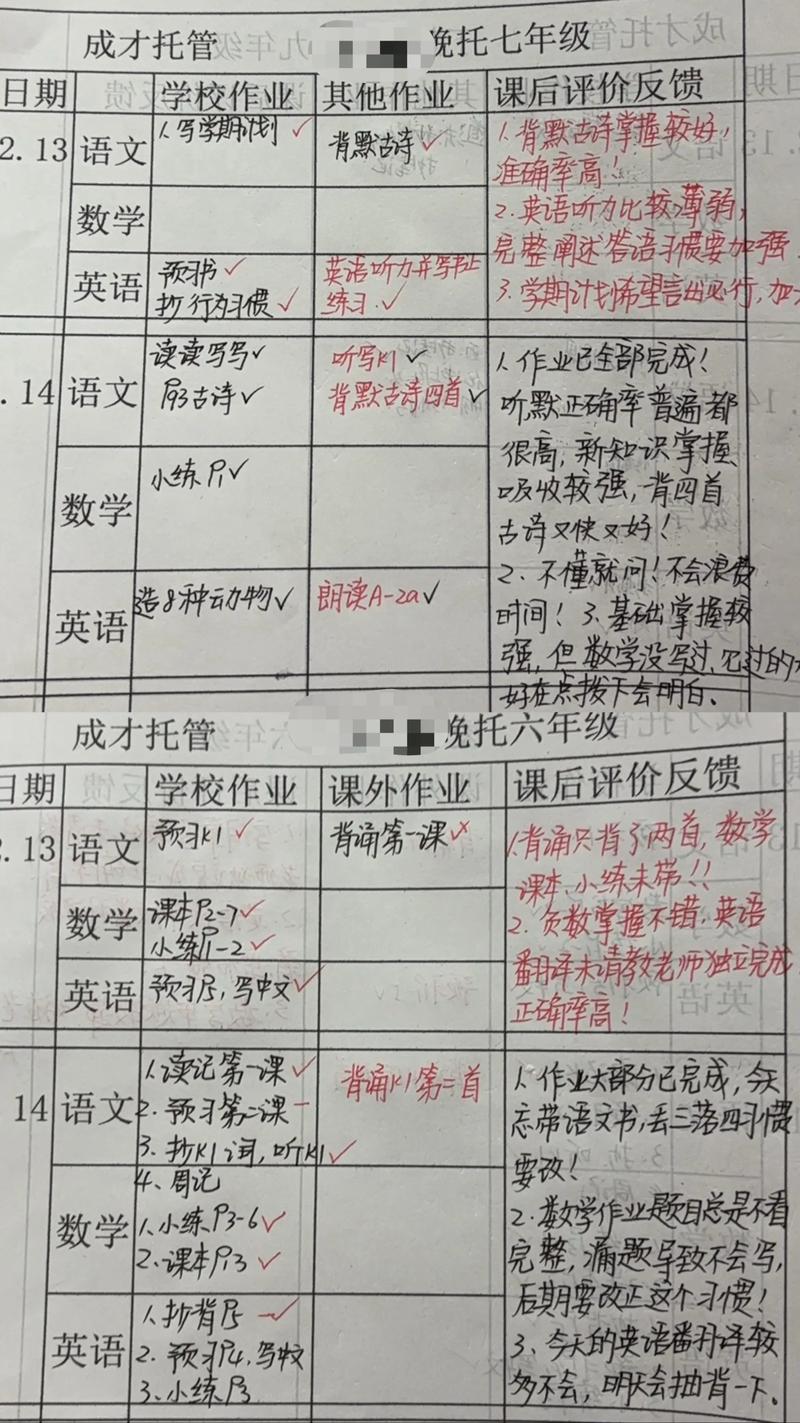 成才托管 晚托七年级
日期 学校作业 其他作业 课后评价反馈
2.13 语文 1.写学期计划✓ 背默古诗✓
数学
英语 预习书✓
抄行为习惯✓
英语听力并写书上
练习.✓
1.背默古诗掌握较好,
准确率高!
2.英语听力比较薄弱,
完整阐述答语习惯要加强.
3.学期计划希望言出必行,加
.14 语文 读读写写✓
P93古诗✓
听写K1✓
背默古诗四首✓
数学 小练P1✓
英语 造8种动物✓ 朗读A-2a✓
1.作业已全部完成!
听,默正确率普遍都
很高,新知识掌握、
吸收较强,背四首
古诗又快又好!
2.不懂就问!不会浪费
时间!3.基础掌握较
强,但数学没写过、见过的
好在点拨下会明白.
成才托管 晚托六年级
日期 学校作业 课外作业 课后评价反馈
2.13 语文 预习K1✓ 背诵第一课✗
数学 课本P2-7✓
小练P1-2✓
英语 预习P5,写中文✓
1.背诵只背了两首,数学
课本、小练未带!!
2.负数掌握不错,英语
翻译未请教老师独立完成
正确率高!
14 语文 1.读记第一课✓
2.预习第二课-
3.抄K1词,听K1✓
4、周记
背诵K1第二首
数学 1.小练P3-6✓
2.课本P13✓
英语 1.抄背P5✓
2.预习P4,写中文
3.小练P3
1.作业大部分已完成,今天
忘带语文书,丢三落四习惯
要改!
2.数学作业题目总是不看
完整,漏题导致不会写,
后期要改正这个习惯!
3、今天的英语翻译较
多不会,明天会抽背一下.